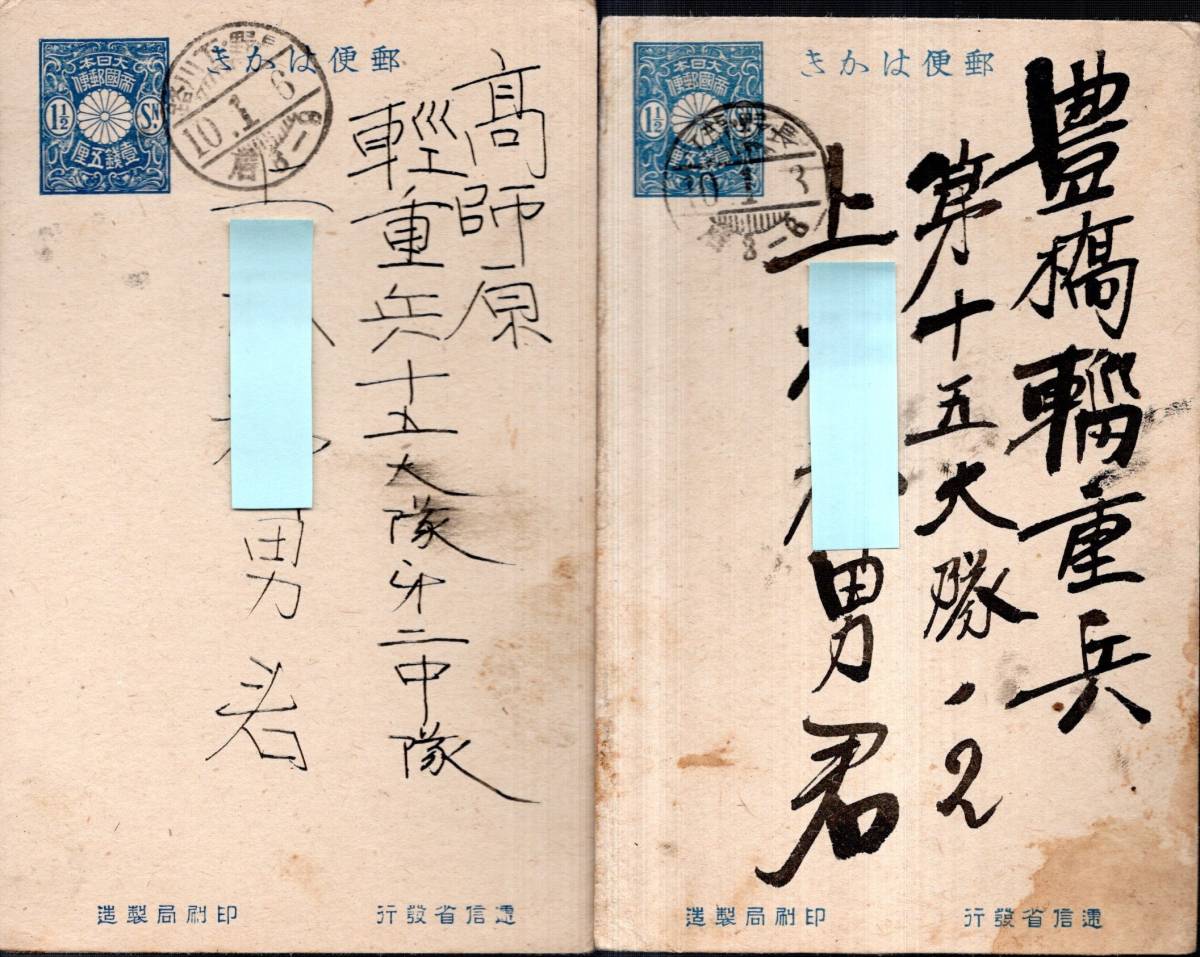 郵便はかき
大日本
帝國郵便
1½ Sɴ.
壹錢五厘
10.1.6
高師原
輕重兵十五大隊第二中隊
男君
逓信省發行
印刷局製造
郵便はかき
大日本
帝國郵便
1½
壹錢五厘
10.1.3
豊橋輜重兵
第十五大隊ノ2
上
男君
逓信省發行
印刷局製造